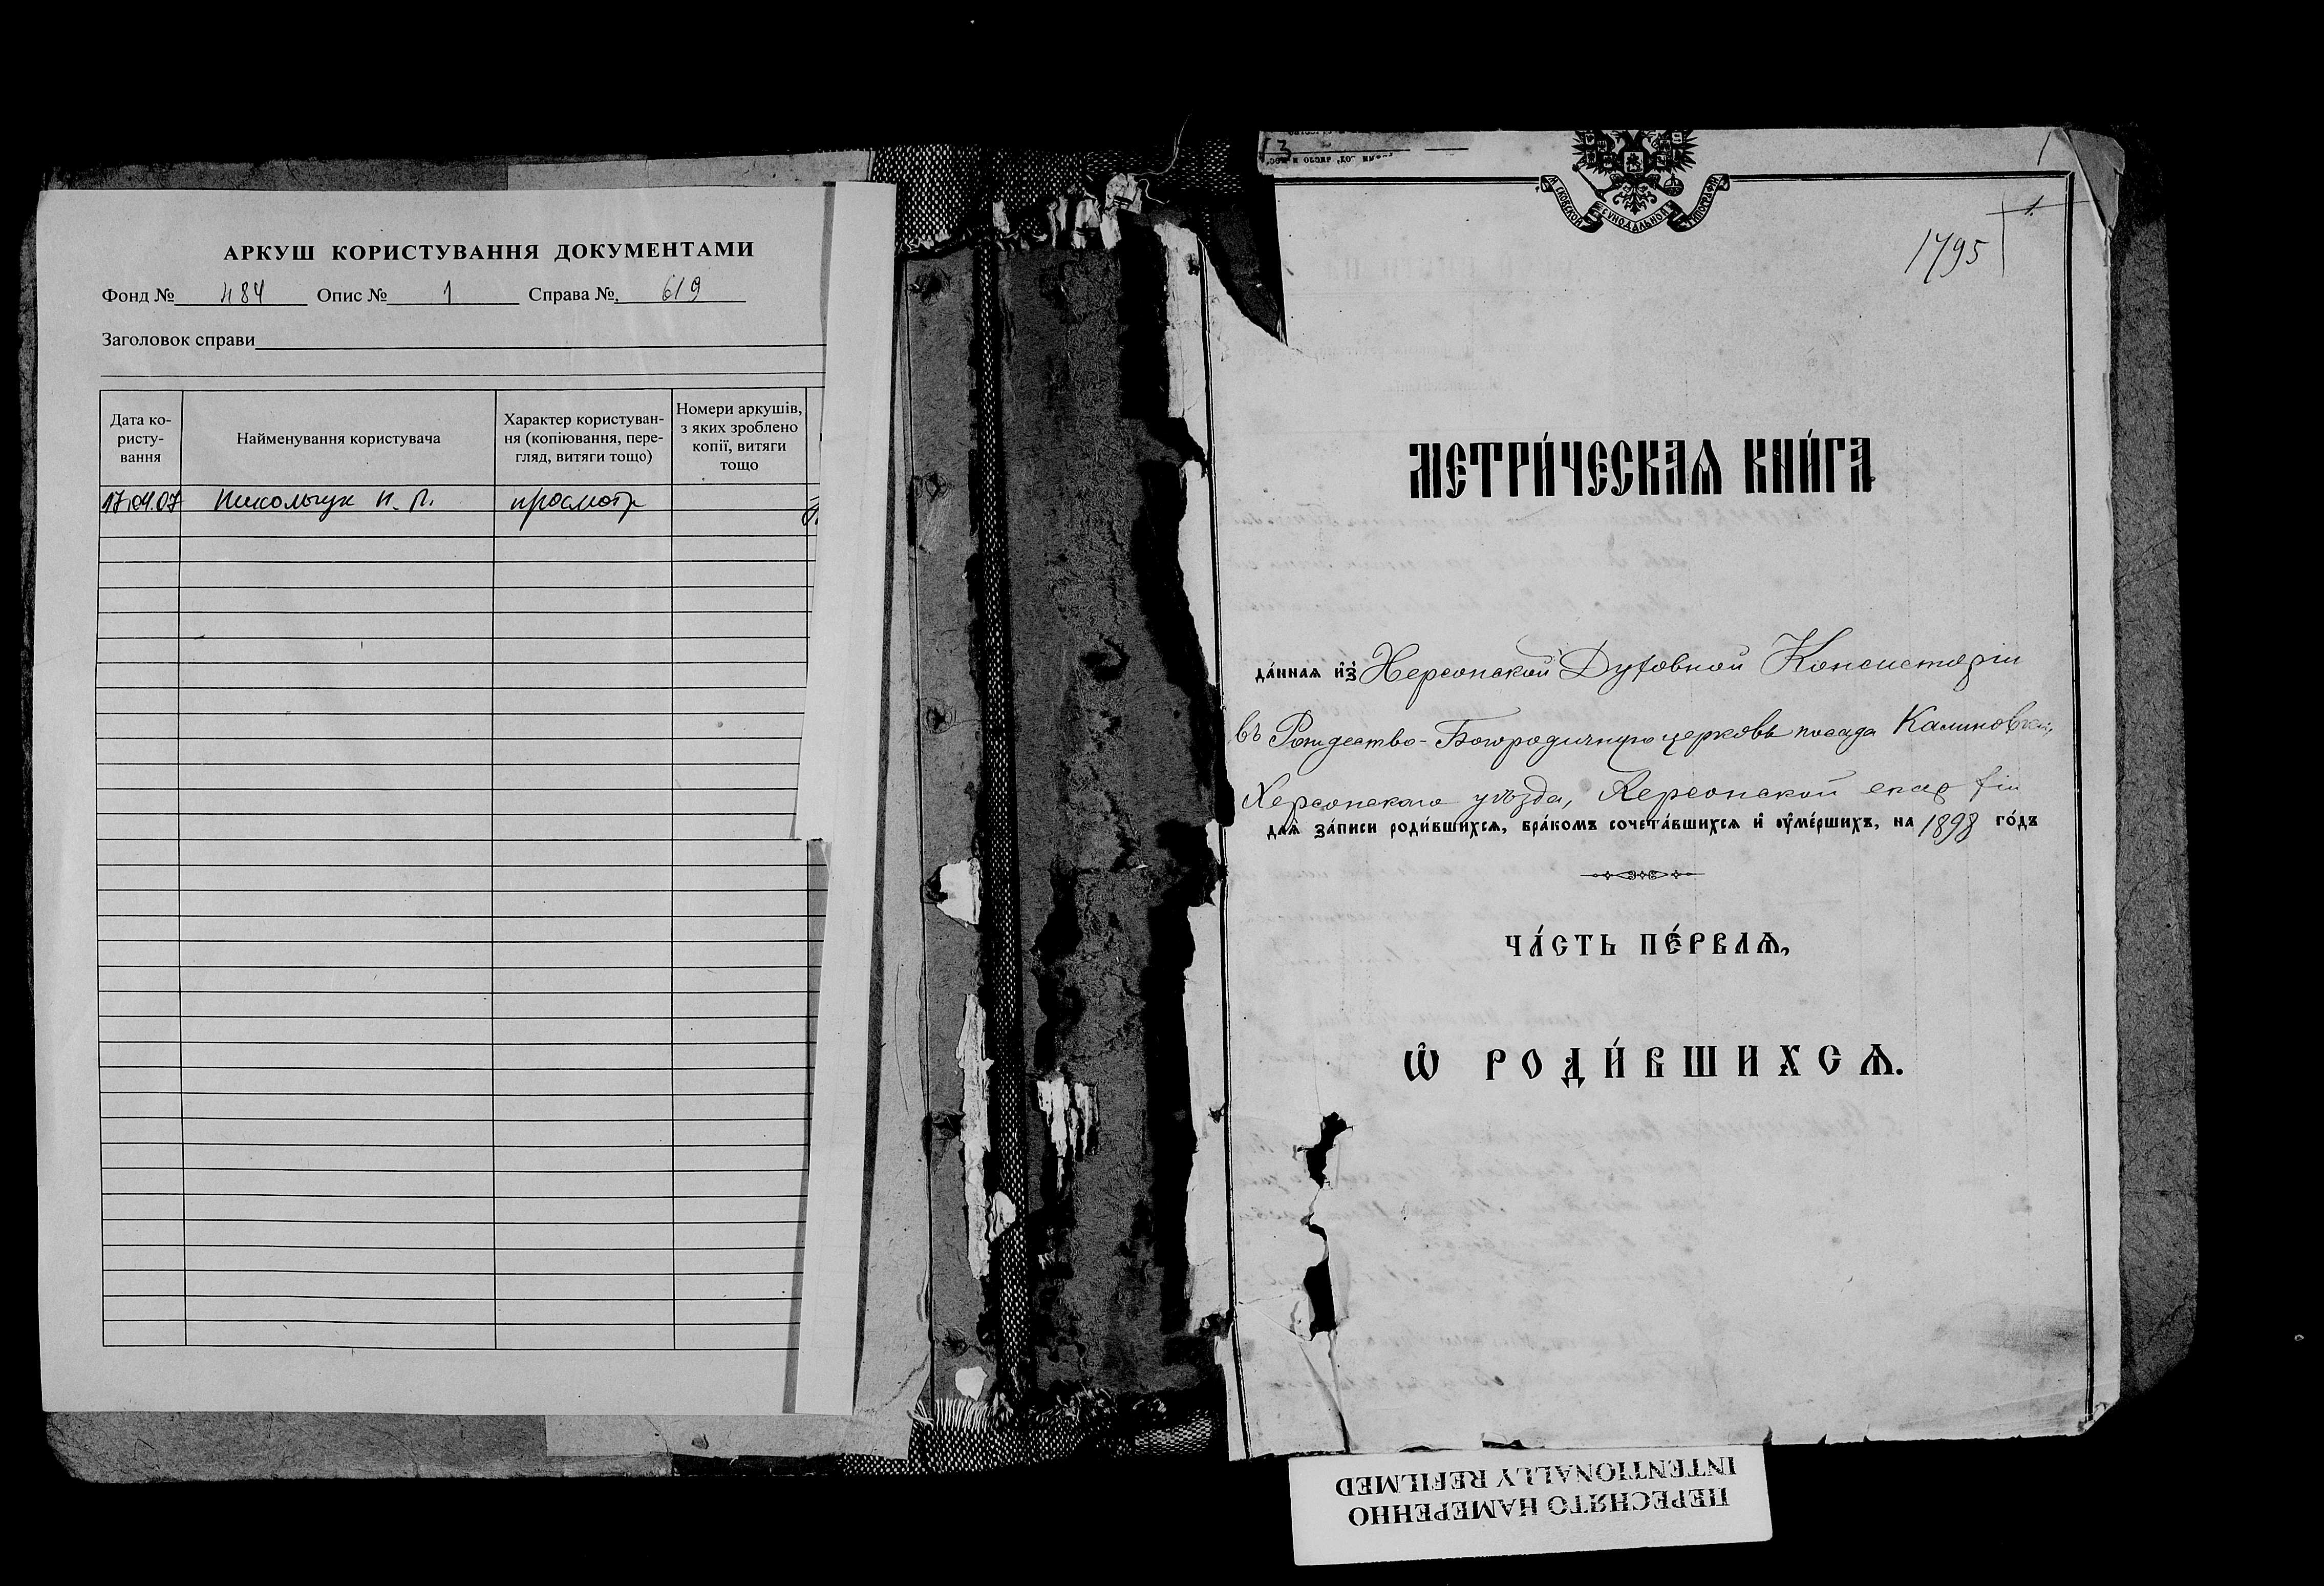 АРКУШ КОРИСТУВАННЯ ДОКУМЕНТАМИ
Фонд № 484 Опис № 1 Справа №. 619
Заголовок справи
Дата ко-
ристу-
вання
Найменування користувача
Характер користуван-
ня (копіювання, пере-
гляд, витяги тощо)
Номери аркушів,
з яких зроблено
копії, витяги
тощо
17.04.07 Никольчук Н. П. просмотр
3
МОСКОВСКОЙ СѴНОДАЛЬНОЙ ТИПОГРАФІИ
1
1.
1795
МЕТРИ́ЧЕСКАѦ КНИ́ГА
да́ннаѧ и҆з̾ Херсонской Духовной Консисторіи
въ Рождество-Богородичную церковь посада Калиновки,
Херсонскаго уѣзда, Херсонской епархіи
длѧ̀ за́писи роди́вшихсѧ, бра́комъ сочета́вшихсѧ и҆ ᲂу҆ме́ршихъ, на 1898 го́дъ
ЧА́СТЬ ПЕ́РВАѦ,
Ѽ РОДИ́ВШИХСѦ.
ПЕРЕСНЯТО НАМЕРЕННО
INTENTIONALLY REFILMED